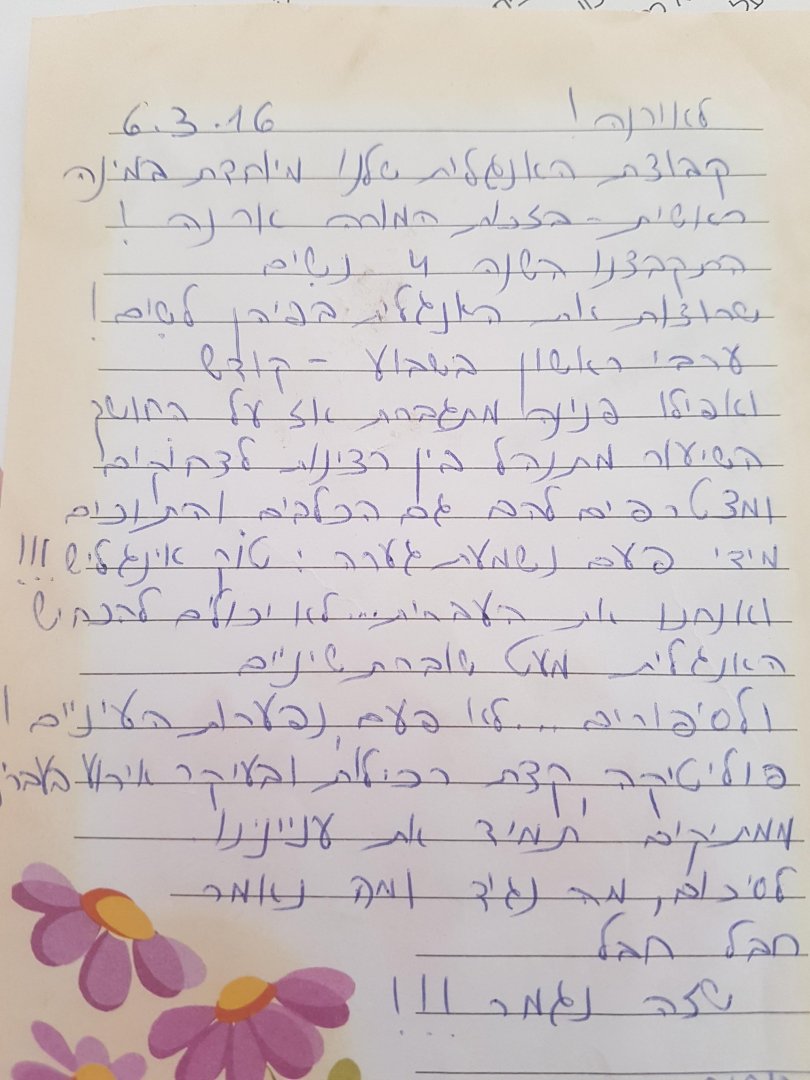 לאורנה! 6.3.16
קבוצת האנגלית שלנו מיוחדת במינה
ראשית - בזכות המורה ארנה!
התקבצנו השנה 4 נשים
שרוצות את האנגלית בפיהן לשים!
ערבי ראשון בשבוע - קודש
ואפילו פנינה מתגברת אז על החושך
השיעור מתנהל בין רצינות לצחוקים
ומצטרפים להם גם הכלבים והתוכים
מידי פעם נשמעת גערה: טוק אינגליש!!!
ואנחנו את העברית... לא יכולים להכחיש
האנגלית מעט שוברת שיניים
ולסיפורים... לא פעם נפערות העיניים!
פוליטיקה קצת רכילות ובעיקר אירוע בעבר
ממתיקים תמיד את ענייננו
לסיכום, מה נגיד ומה נאמר
חבל חבל
שזה נגמר!!!